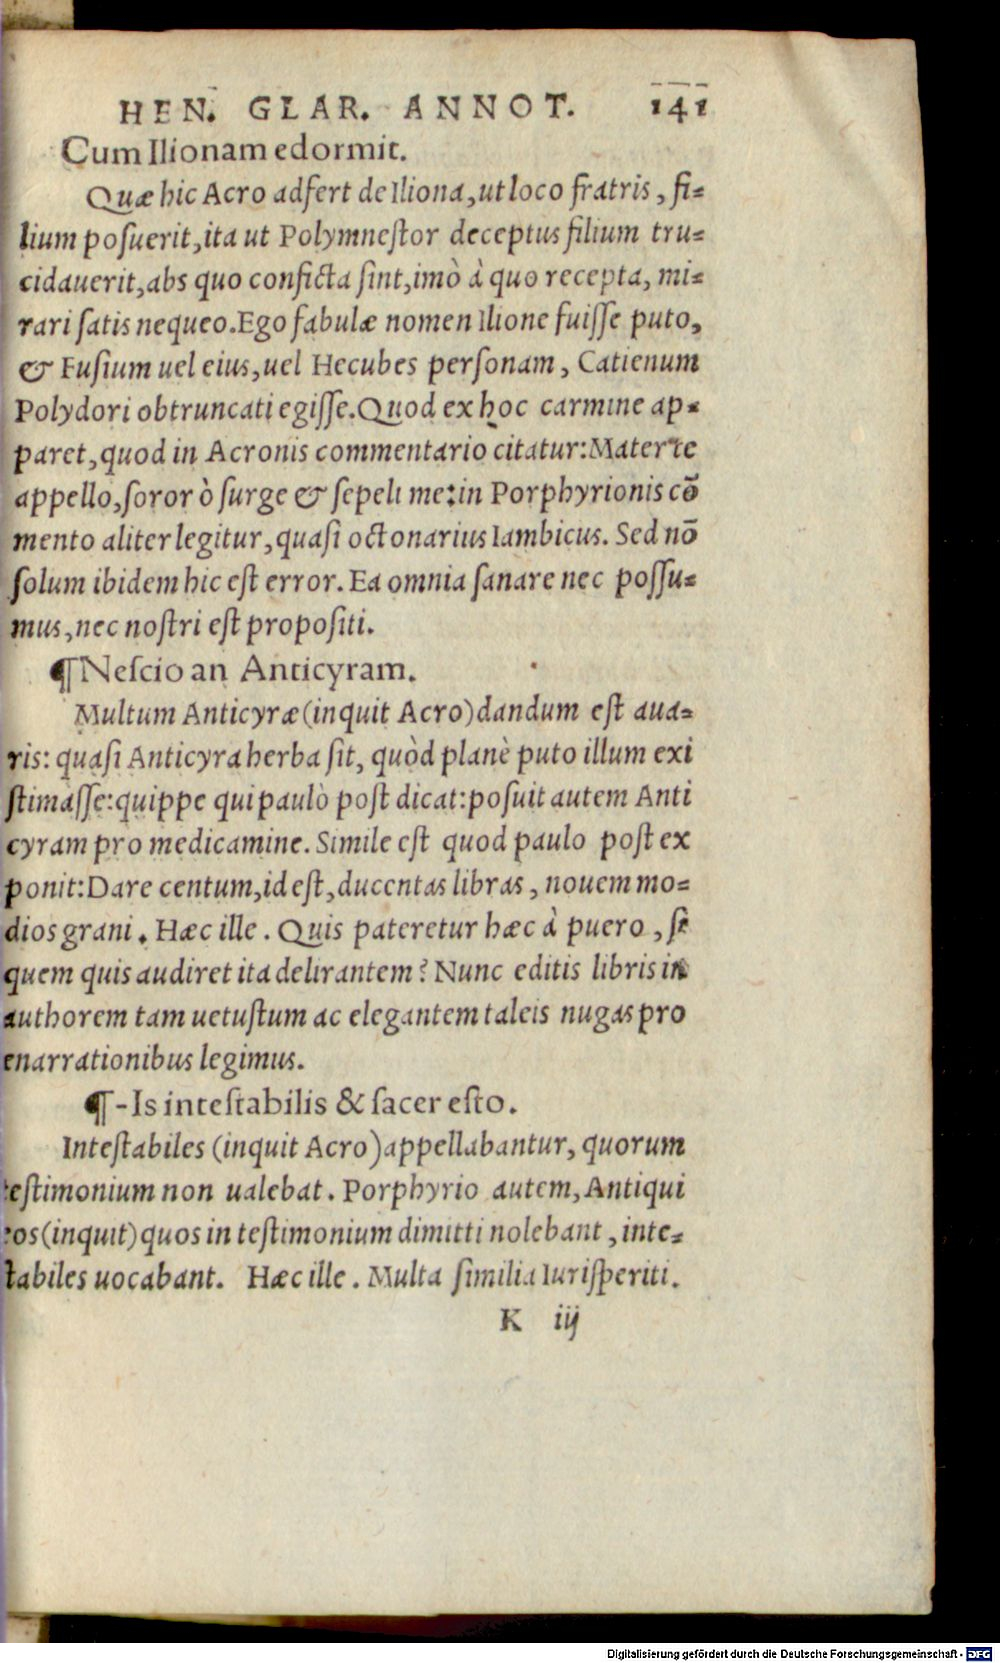 HEN. GLAR. ANNOT. 141
Cum Ilionam edormit.
Quæ hic Acro adfert de Iliona, ut loco fratris, fi-
lium posuerit, ita ut Polymnestor deceptus filium tru-
cidauerit, abs quo conficta sint, imò à quo recepta, mi-
rari satis nequeo. Ego fabulæ nomen Ilione fuisse puto,
& Fusium uel eius, uel Hecubes personam, Catienum
Polydori obtruncati egisse. Quod ex hoc carmine ap-
paret, quod in Acronis commentario citatur: Mater te
appello, soror ò surge & sepeli me: in Porphyrionis cō
mento aliter legitur, quasi octonarius Iambicus. Sed nō
solum ibidem hic est error. Ea omnia sanare nec possu-
mus, nec nostri est propositi.
¶ Nescio an Anticyram.
Multum Anticyræ (inquit Acro) dandum est aua-
ris: quasi Anticyra herba sit, quòd planè puto illum exi
stimasse: quippe qui paulò post dicat: posuit autem Anti
cyram pro medicamine. Simile est quod paulo post ex
ponit: Dare centum, id est, ducentas libras, nouem mo-
dios grani. Hæc ille. Quis pateretur hæc à puero, si
quem quis audiret ita delirantem? Nunc editis libris in
authorem tam uetustum ac elegantem taleis nugas pro
enarrationibus legimus.
¶ -Is intestabilis & sacer esto.
Intestabiles (inquit Acro) appellabantur, quorum
testimonium non ualebat. Porphyrio autem, Antiqui
eos (inquit) quos in testimonium dimitti nolebant, inte-
stabiles uocabant. Hæc ille. Multa similia Iurisperiti.
K iij
Digitalisierung gefördert durch die Deutsche Forschungsgemeinschaft - DFG